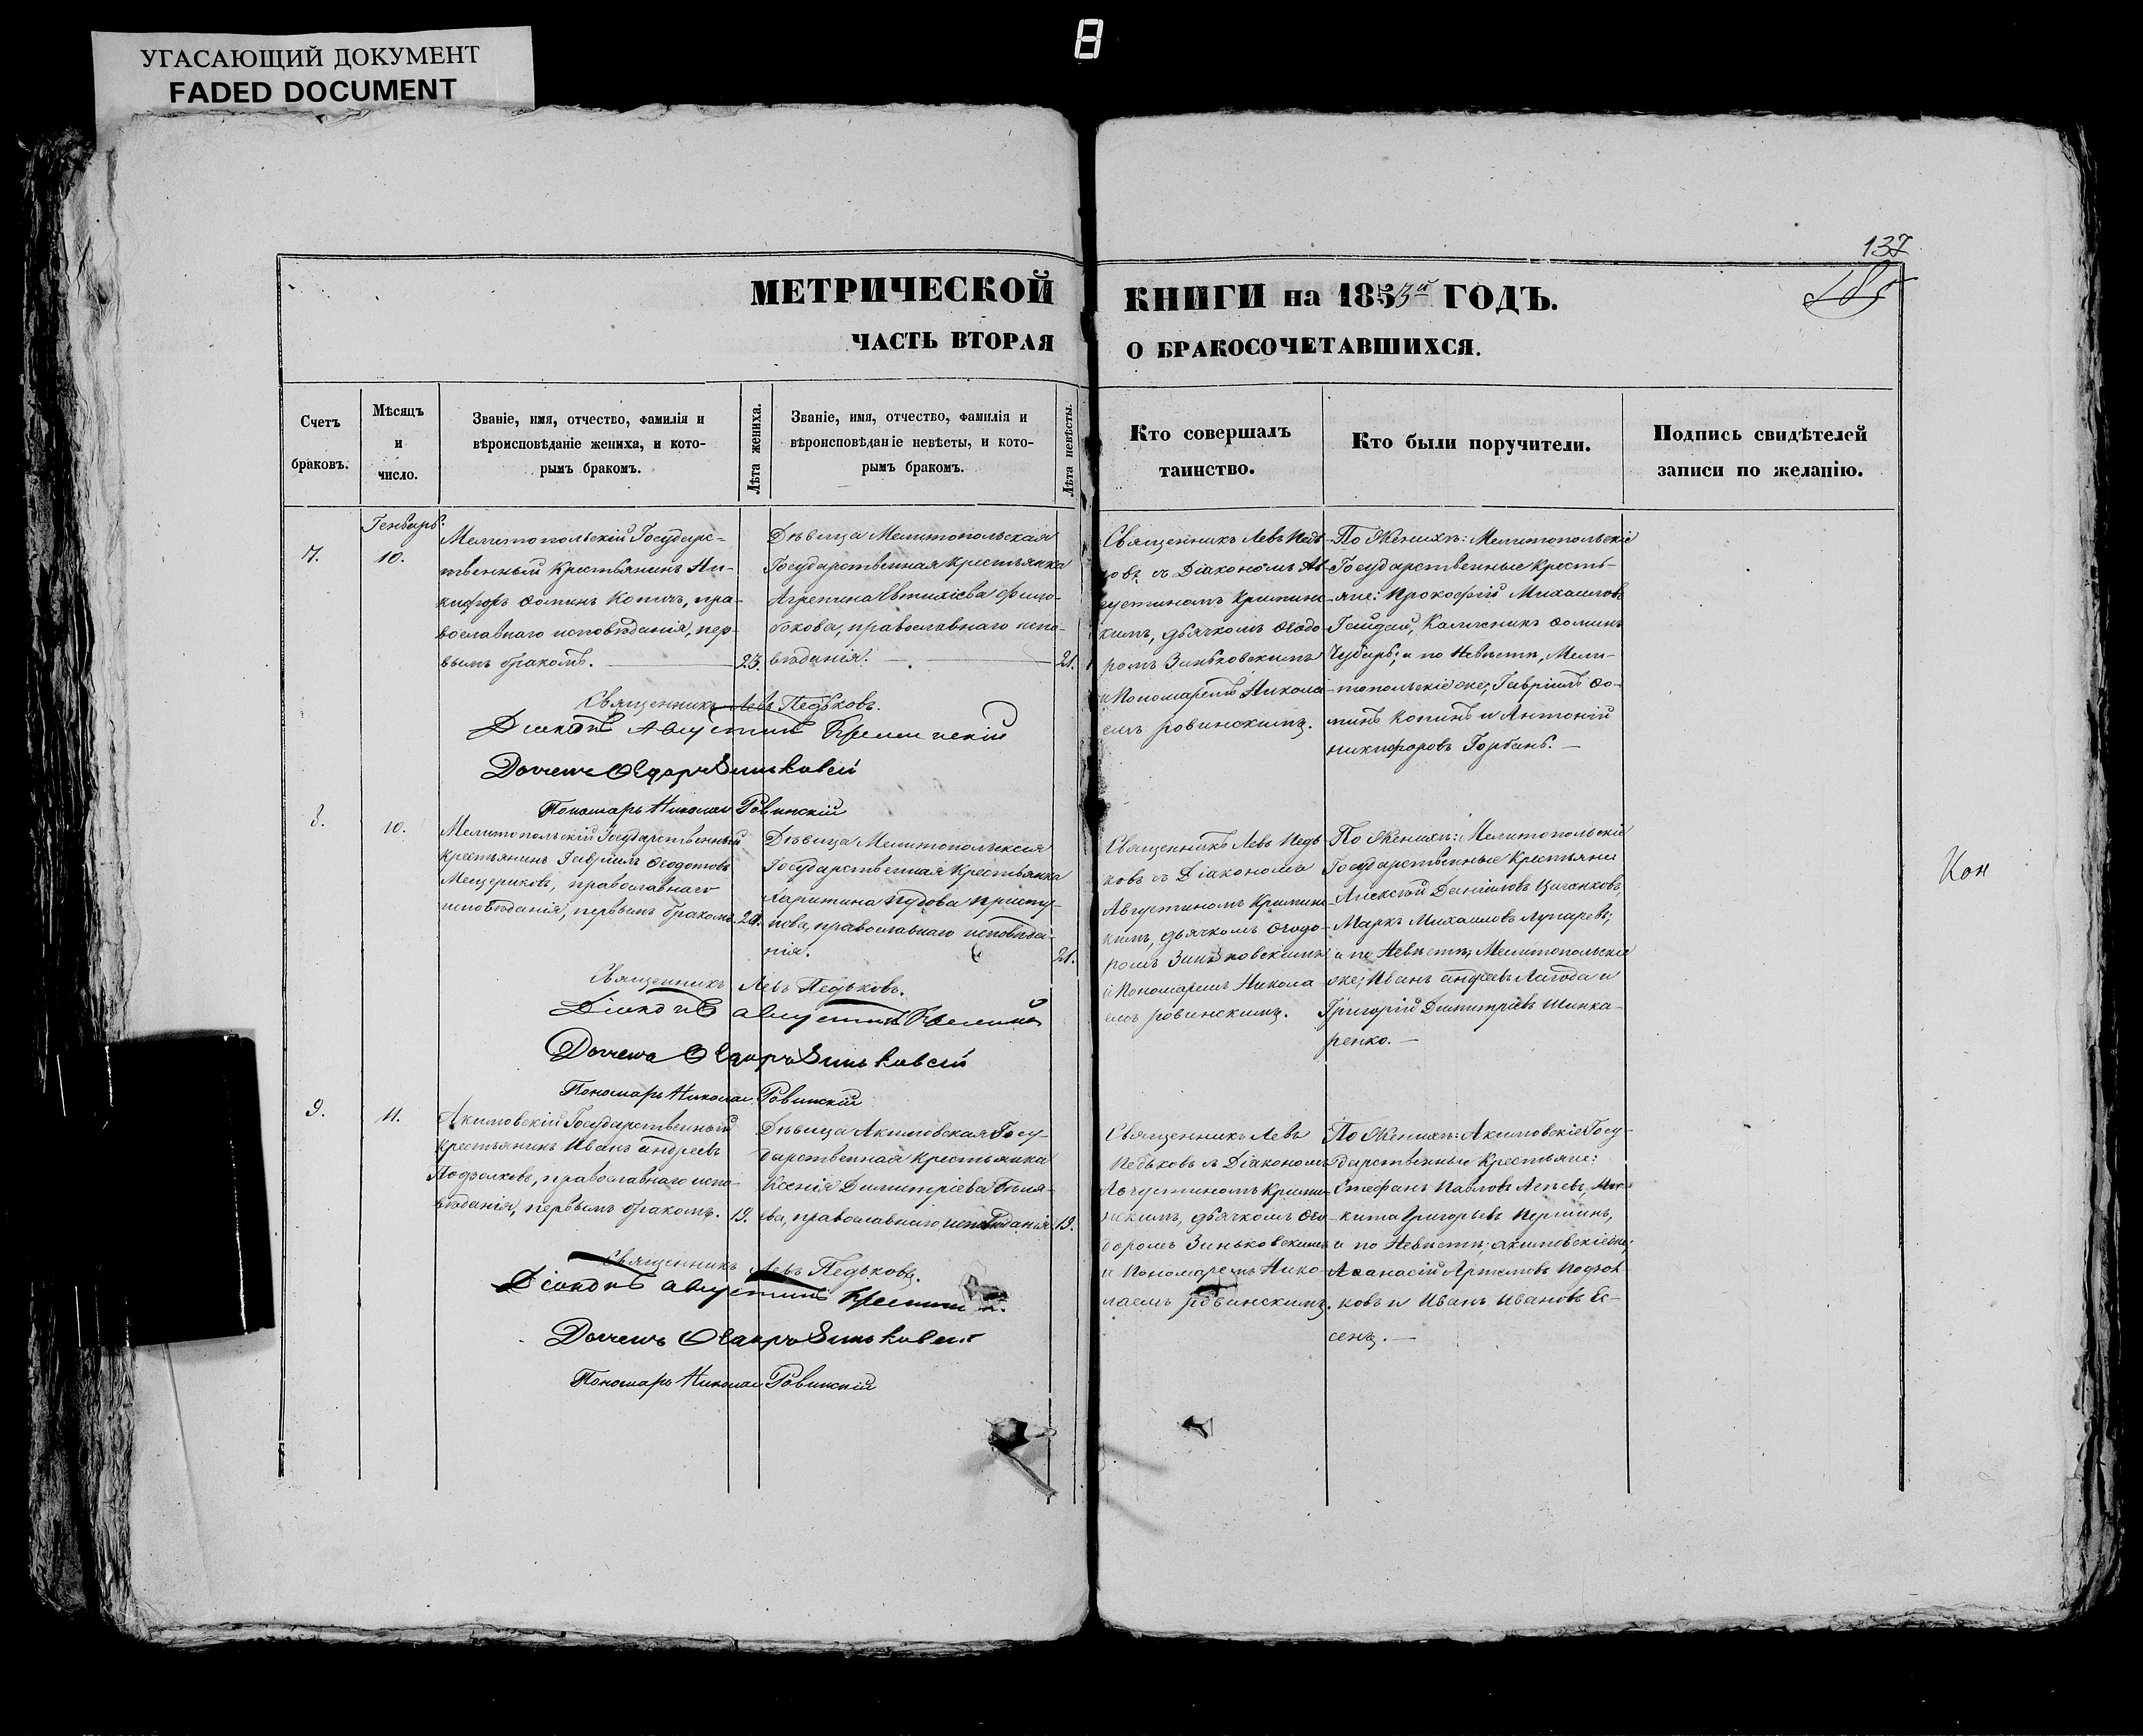 8
УГАСАЮЩИЙ ДОКУМЕНТ
FADED DOCUMENT
137
185
МЕТРИЧЕСКОЙ КНИГИ на 1853й ГОДЪ.
ЧАСТЬ ВТОРАЯ О БРАКОСОЧЕТАВШИХСЯ.
Счетъ
браковъ.
Мѣсяцъ
и
число.
Званіе, имя, отчество, фамилія и
вѣроисповѣданіе жениха, и кото-
рымъ бракомъ.
Лѣта жениха.
Званіе, имя, отчество, фамилія и
вѣроисповѣданіе невѣсты, и кото-
рымъ бракомъ.
Лѣта невѣсты.
Кто совершалъ
таинство.
Кто были поручители.
Подпись свидѣтелей
записи по желанію.
7.
Генварь.
10.
Мелитопольскій Государс-
твенный Крестьянинъ Ни-
кифоръ Ѳоминъ Копичъ, пра-
вославнаго исповѣданія, пер-
вымъ бракомъ.
23.
Дѣвица Мелитопольская
Государственная Крестьянка
Агрепина Евтихіева
православнаго испо-
вѣданія.
21.
Священникъ Левъ Педь-
ковъ съ Діакономъ Ав-
густиномъ Кремин
кимъ, дьячкомъ Ѳеодо-
ромъ Зиньковскимъ
и Пономаремъ Никола-
емъ Ровинскимъ.
По Женихѣ: Мелитопольскіе
Государственные Кресть-
яне: Прокофій Михаиловъ
Гайдай, Калиникъ Ѳоминъ
Чубарь; и по Невѣстѣ, Мели-
топольскіе же; Гавріилъ Ѳо-
минъ Копичъ и Антоній
Никифоровъ Горбань. —
Священникъ Левъ Педьковъ.
Діаконъ Августинъ
Дьячекъ Ѳеодоръ Зиньковскій
Пономарь Николай Ровинскій
8.
10.
Мелитопольскій Государственный
Крестьянинъ Гавріилъ Ѳеодотовъ
Мещериковъ, православнаго
исповѣданія, первымъ бракомъ.
20.
Дѣвица Мелитопольская
Государственная Крестьянка
Харитина Пудова Присту-
пова, православнаго исповѣда-
нія.
21.
Священникъ Левъ Педь
ковъ съ Діакономъ
Августиномъ Кремин
кимъ, дьячкомъ Ѳеодо-
ромъ Зиньковскимъ
и Пономаремъ Никола-
емъ Ровинскимъ.
По Женихѣ: Мелитопольскіе
Государственные Крестьяне
Алексѣй Даніиловъ Цыганковъ,
Маркъ Михаиловъ
и по Невѣстѣ; Мелитопольскіе
же; Иванъ Андреевъ Лагода и
Григорій Димитріевъ Шинка-
ренко. —
Кон
Священникъ Левъ Педьковъ.
Діаконъ Августинъ
Дьячекъ Ѳеодоръ Зиньковскій
Пономарь Николай Ровинскій
9.
11.
Акимовскій Государственный
Крестьянинъ Иванъ Андреевъ
Подзолковъ, православнаго испо-
вѣданія, первымъ бракомъ.
19.
Дѣвица Акимовская Госу-
дарственная Крестьянка
Ксенія Димитріева Бѣля-
ева, православнаго исповѣданія
19.
Священникъ Левъ
Педьковъ съ Діакономъ
Августиномъ Креми-
нскимъ, дьячкомъ Ѳео-
доромъ Зиньковскимъ
и Пономаремъ Нико-
лаемъ Ровинскимъ.
По Женихѣ: Акимовскіе Госу-
дарственные Крестьяне:
Стефанъ Павловъ Ни-
кита Григорьевъ Першинъ,
и по Невѣстѣ; Акимовскіе же;
Аѳанасій Артемовъ Подзол-
ковъ и Иванъ Ивановъ Ес-
сенъ. —
Священникъ Левъ Педьковъ.
Діаконъ Августинъ
Дьячекъ Ѳеодоръ Зиньковскій
Пономарь Николай Ровинскій